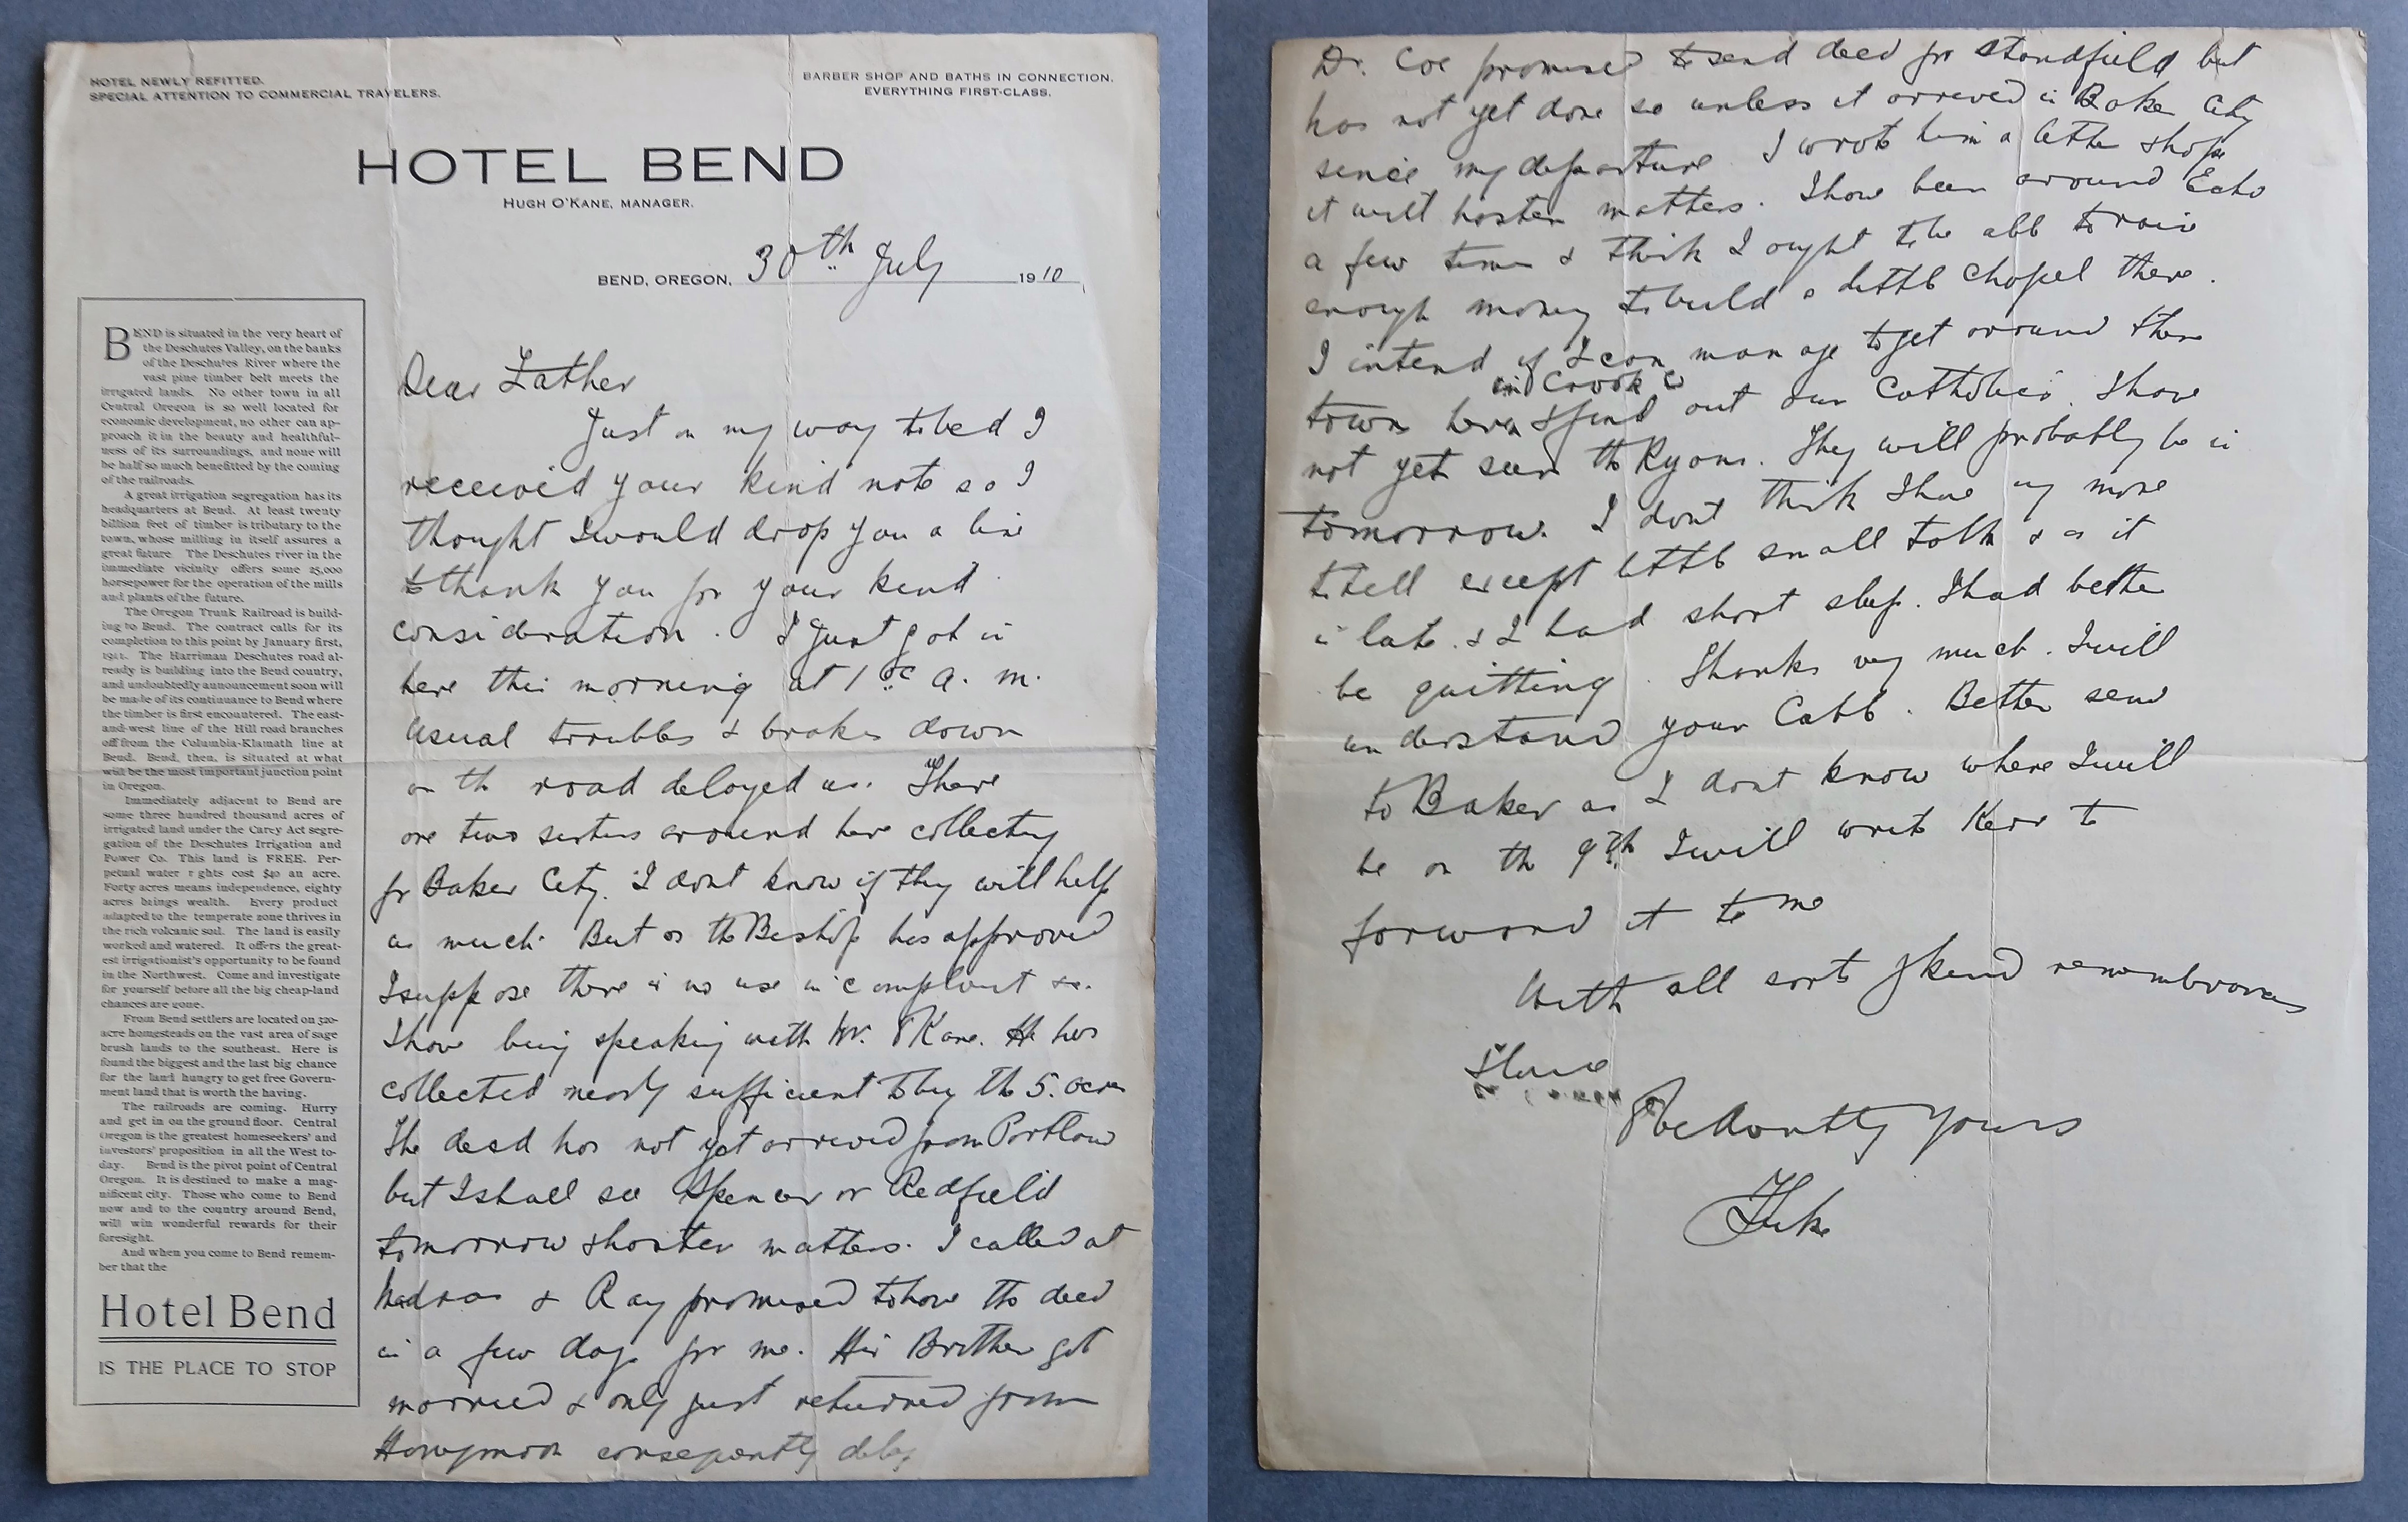 HOTEL NEWLY REFITTED.
SPECIAL ATTENTION TO COMMERCIAL TRAVELERS.
BARBER SHOP AND BATHS IN CONNECTION.
EVERYTHING FIRST-CLASS.
HOTEL BEND
HUGH O'KANE, MANAGER.
BEND, OREGON, 30th July 1910
BEND is situated in the very heart of
the Deschutes Valley, on the banks
of the Deschutes River where the
vast pine timber belt meets the
irrigated lands. No other town in all
Central Oregon is so well located for
economic development, no other can ap-
proach it in the beauty and healthful-
ness of its surroundings, and none will
be half so much benefitted by the coming
of the railroads.
A great irrigation segregation has its
headquarters at Bend. At least twenty
billion feet of timber is tributary to the
town, whose milling in itself assures a
great future. The Deschutes river in the
immediate vicinity offers some 25,000
horsepower for the operation of the mills
and plants of the future.
The Oregon Trunk Railroad is build-
ing to Bend. The contract calls for its
completion to this point by January first,
1911. The Harriman Deschutes road al-
ready is building into the Bend country,
and undoubtedly announcement soon will
be made of its continuance to Bend where
the timber is first encountered. The east-
and-west line of the Hill road branches
off from the Columbia-Klamath line at
Bend. Bend, then, is situated at what
will be the most important junction point
in Oregon.
Immediately adjacent to Bend are
some three hundred thousand acres of
irrigated land under the Carey Act segre-
gation of the Deschutes Irrigation and
Power Co. This land is FREE. Per-
petual water r ghts cost $40 an acre.
Forty acres means independence, eighty
acres brings wealth. Every product
adapted to the temperate zone thrives in
the rich volcanic soil. The land is easily
worked and watered. It offers the great-
est irrigationist's opportunity to be found
in the Northwest. Come and investigate
for yourself before all the big cheap-land
chances are gone.
From Bend settlers are located on 320-
acre homesteads on the vast area of sage
brush lands to the southeast. Here is
found the biggest and the last big chance
for the land hungry to get free Govern-
ment land that is worth the having.
The railroads are coming. Hurry
and get in on the ground floor. Central
Oregon is the greatest homeseekers' and
investors' proposition in all the West to-
day. Bend is the pivot point of Central
Oregon. It is destined to make a mag-
nificent city. Those who come to Bend
now and to the country around Bend,
will win wonderful rewards for their
foresight.
And when you come to Bend remem-
ber that the
Hotel Bend
IS THE PLACE TO STOP
Dear Father
Just on my way to bed I
received your kind note so I
thought I would drop you a line
to thank you for your kind
consideration. I just got in
here this morning at 1 oc A. M.
Usual troubles & brakes down
on the road delayed us. There
are two sisters around here collecting
for Baker City. I dont know if they will help
us much. But as the Bishop has approved
I suppose there is no use in complaint &c.
I have being speaking with Mr. O'Kane. He has
collected nearly sufficient to buy the 5. acres
The deed has not yet arrived from Portland
but I shall see Spencer or Redfield
tomorrow & hasten matters. I called at
Madras & Ray promised to have the deed
in a few days for me. His Brother got
married & only just returned from
Honeymoon consequently delay
Dr. Coe promised to send deed for Standfield but
has not yet done so unless it arrived in Baker City
since my departure. I wrote him a letter & hope
it will hasten matters. I have been around Echo
a few times & think I ought to be able to raise
enough money to build a little chapel there.
I intend if I can manage to get around these
in Crook Co
towns here & find out our Catholics. I have
not yet seen the Ryans. They will probably be in
tomorrow. I dont think I have any more
to tell except little small talk & as it
is late. & I had short sleep. I had better
be quitting. Thanks very much. I will
understand your Cable. Better send
to Baker as I dont know where I will
be on the 9th. I will write Kerr to
forward it to me
With all sorts of kind remembrances
I have
Reluctantly yours
Luke